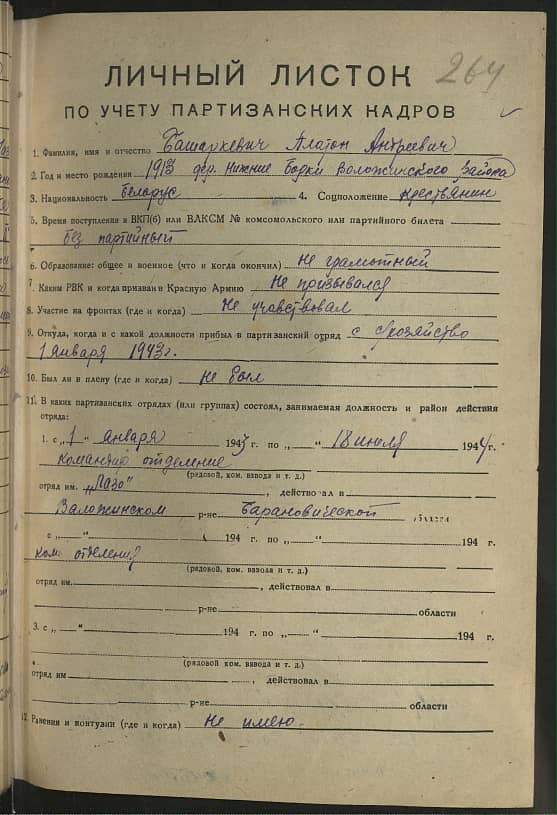 264
ЛИЧНЫЙ ЛИСТОК
ПО УЧЕТУ ПАРТИЗАНСКИХ КАДРОВ
1. Фамилия, имя и отчество Башаркевич Платон Андреевич
2. Год и место рождения 1913 дер. Нижние Бодки Воложинского района
3. Национальность белорус 4. Соцположение крестьянин
5. Время поступления в ВКП(б) или ВЛКСМ № комсомольского или партийного билета
без партийный
6. Образование: общее и военное (что и когда окончил) Не грамотный
7. Каким РВК и когда призван в Красную Армию Не призывался
8. Участие на фронтах (где и когда) Не учавствовал
9. Откуда, когда и с какой должности прибыл в партизанский отряд с с/хозяйство
1 января 1943 г.
10. Был ли в плену (где и когда) не был
11. В каких партизанских отрядах (или группах) состоял, занимаемая должность и район действия
отряда:
1. с „1" января 1943 г. по „ " 18 июля 1944 г.
командир отделение
(рядовой, ком. взвода и т. д.)
отряд им. „Лазо" , действовал в
Валожинском р-не Барановической области
с „ " 194 г. по „ " 194 г.
ком. отделения
(рядовой, ком. взвода и т. д.)
отряд им. , действовал в
р-не области
3. с „ " 194 г. по „ " 194 г.
(рядовой ком. взвода и т. д.)
отряд им , действовал в
р-не области
12. Ранения и контузии (где и когда) Не имею.